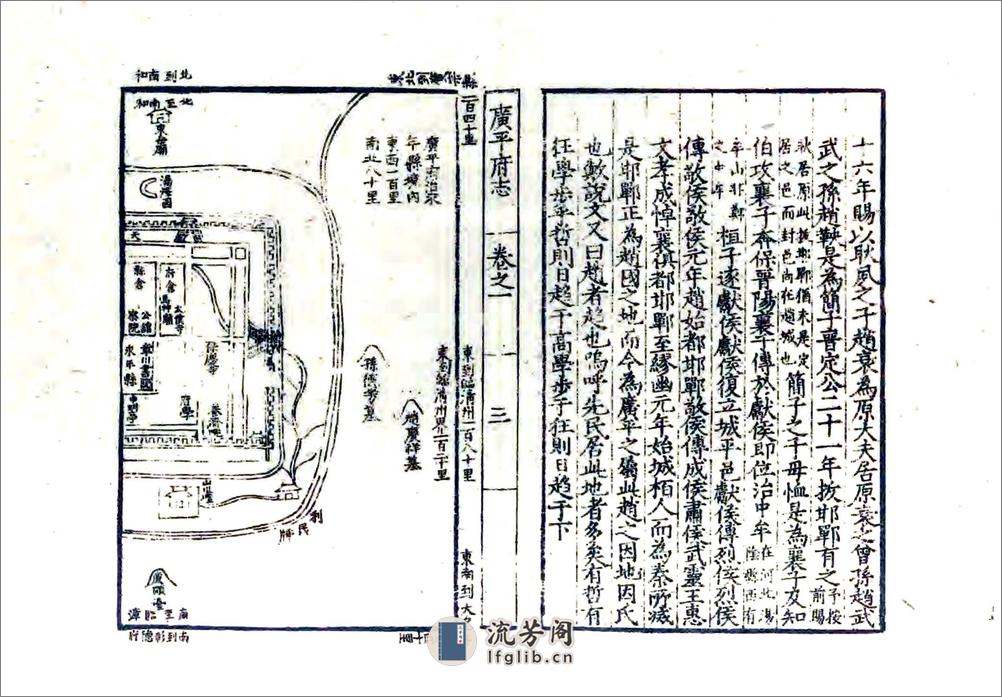 十六年賜以耿風之子趙衰為原大夫居原衰之曾孫趙武
武之孫趙鞅是為簡子晉定公二十一年拔邯鄲有之
予按前賜
耿居原此拔邯鄲猶未是定
居之邑而封邑尚在趙城也
簡子之子毋恤是為襄子及知
伯攻襄子奔保晉陽襄子傳於獻侯即位治中牟
在河北湯陰縣西有
牟山非鄭之中牟
桓子逐獻侯獻侯復立城平邑獻侯傳烈侯烈侯
傳敬侯敬侯元年趙始都邯鄲敬侯傳成侯肅侯武靈王惠
文孝成悼襄俱都邯鄲至繆幽元年始城柏人而為秦所滅
是邯鄲正為趙國之地而今為廣平之屬此趙之因地因氏
也歟說文又曰趙者趨也嗚呼先民居此地者多矣有哲有
狂學步乎哲則日趨于高學步于狂則日趨于下
廣平府志
卷之一
三
縣一百四十里
東到臨清州一百八十里
東南到大名
廣平府治永
年縣境內
東西一百里
南北八十里
東至臨清州界一百二十里
趙慶祥墓
北到南和
北至南和
東嶽廟
府倉
馬神廟
縣倉
公館
察院
章川書院
永年縣
府學
山川壇
利民牌
南至臨漳
南到彰德府
流芳阁
lfglib.cn